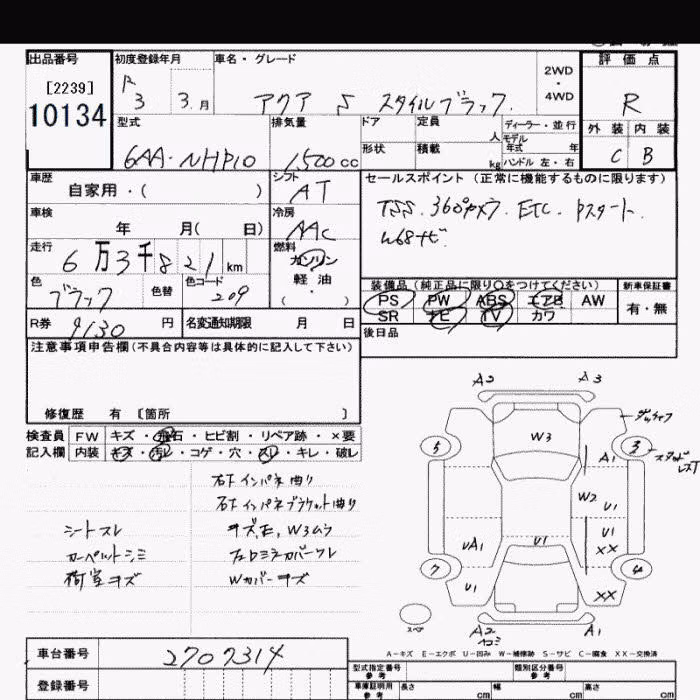 出品番号
[2239]
10134
初度登録年月
R 3 3.月
車名・グレード
アクア S スタイルブラック
2WD
・
4WD
評価点
R
外装 内装
C B
型式
6AA-NHP10
排気量
1,500cc
ドア
形状
定員
人
積載
kg
ディーラー・並行
モデル
年式 年
ハンドル 左・右
車歴
自家用・( )
シフト
AT
セールスポイント(正常に機能するものに限ります)
TSS. 360°カメラ. ETC. Pスタート.
車検
年 月( 日)
冷房
AAC
走行
6万3千821km
燃料
ガソリン
軽油
・
( )
色
ブラック
色替
色コード
209
装備品(純正品に限り○をつけてください)
PS PW ABS エアB AW
SR ナビ TV カワ
新車保証書
有・無
R券
9130円
名変通知期限 月 日
後日品
注意事項申告欄(不具合内容等は具体的に記入して下さい)
修復歴 有 〔箇所 〕
検査員
記入欄
FW キズ・飛石・ヒビ割・リペア跡・×要
内装 キズ・汚レ・コゲ・穴・スレ・キレ・破レ
右下インパネ曲り
右下インパネブラケット曲り
シートスレ
カーペットシミ
荷室キズ
キズ,E,W3ムラ
Wカバーキズ
A2 A3
W3
A1
5 3
W2
U1
U1
U1
XX
UA1
7 4
U1
XX
スペア
A2
ヘコミ
A1
A-キズ E-エクボ U-凹み W-補修跡 S-サビ C-腐食 XX-交換済
車台番号
2707314
登録番号
型式指定番号
参考
類別区分番号
参考
車庫証明用
参考
長さ cm
幅 cm
高さ cm